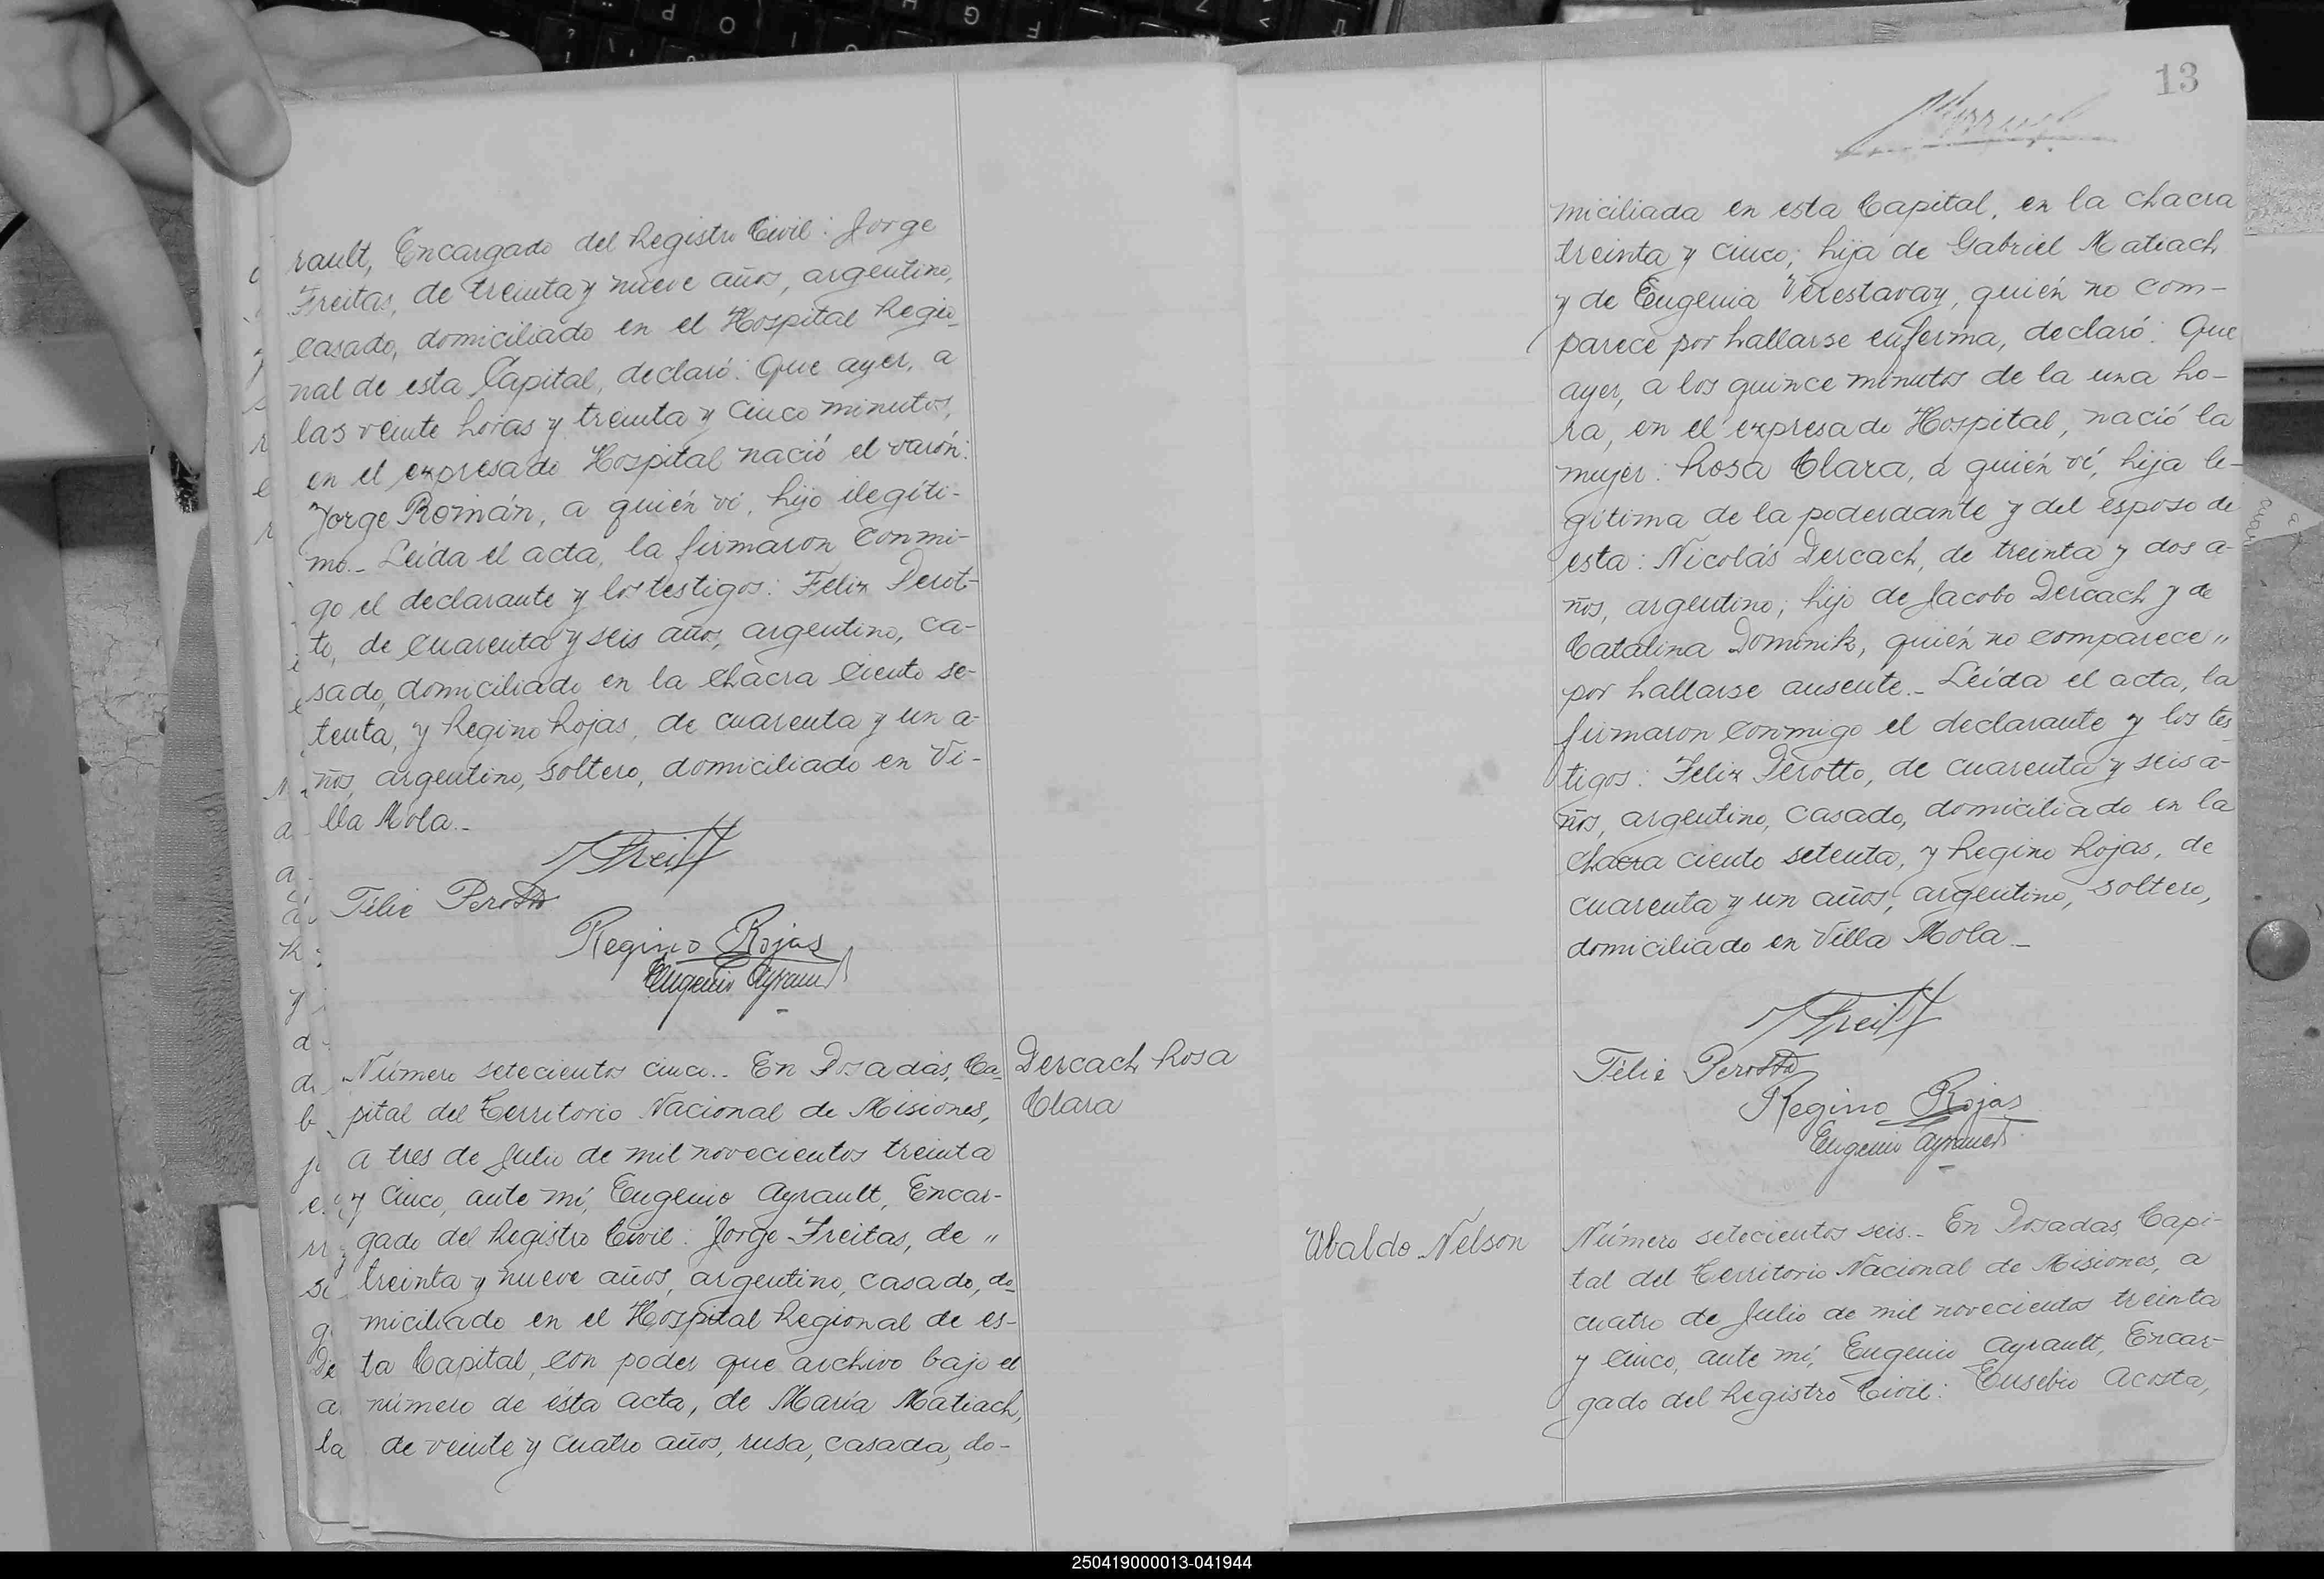 rault, Encargado del Registro Civil: Jorge
Freitas, de treinta y nueve años, argentino,
casado, domiciliado en el Hospital Regio-
nal de esta Capital, declaró: Que ayer, a
las veinte horas y treinta y cinco minutos,
en el expresado Hospital nació el varón:
Jorge Román, a quién ví, hijo ilegíti-
mo.- Leída el acta, la firmaron conmi-
go el declarante y los testigos: Felix Perot-
to, de cuarenta y seis años, argentino, ca-
sado, domiciliado en la chacra ciento se-
tenta, y Regino Rojas, de cuarenta y un a-
ños, argentino, soltero, domiciliado en Vi-
lla Mola.-
Félix Perotto
Regino Rojas
Eugenio Ayrault
Número setecientos cinco.- En Posadas, Ca-
pital del Territorio Nacional de Misiones,
a tres de Julio de mil novecientos treinta
y cinco, ante mí, Eugenio Ayrault, Encar-
gado del Registro Civil: Jorge Freitas, de "
treinta y nueve años, argentino, casado, do-
miciliado en el Hospital Regional de es-
ta Capital, con poder que archivo bajo el
número de ésta acta, de María Matiach,
de veinte y cuatro años, rusa, casada, do-
Dercach Rosa
Clara
13
miciliada en esta Capital, en la chacra
treinta y cinco; hija de Gabriel Matiach
y de Eugenia Verestavay, quién no com-
parece por hallarse enferma, declaró: Que
ayer, a los quince minutos de la una ho-
ra, en el expresado Hospital, nació la
mujer: Rosa Clara, a quién ví, hija le-
gítima de la poderdante y del esposo de
esta: Nicolás Dercach, de treinta y dos a-
ños, argentino; hijo de Jacobo Dercach y de
Catalina Dominik, quién no comparece "
por hallarse ausente.- Leída el acta, la
firmaron conmigo el declarante y los tes-
tigos: Felix Perotto, de cuarenta y seis a-
ños, argentino, casado, domiciliado en la
chacra ciento setenta, y Regino Rojas, de
cuarenta y un años, argentino, soltero,
domiciliado en Villa Mola.-
Félix Perotto
Regino Rojas
Eugenio Ayrault
Ubaldo Nelson
Número setecientos seis.- En Posadas, Capi-
tal del Territorio Nacional de Misiones, a
cuatro de Julio de mil novecientos treinta
y cinco, ante mí, Eugenio Ayrault, Encar-
gado del Registro Civil: Eusebio Acosta,
250419000013-041944